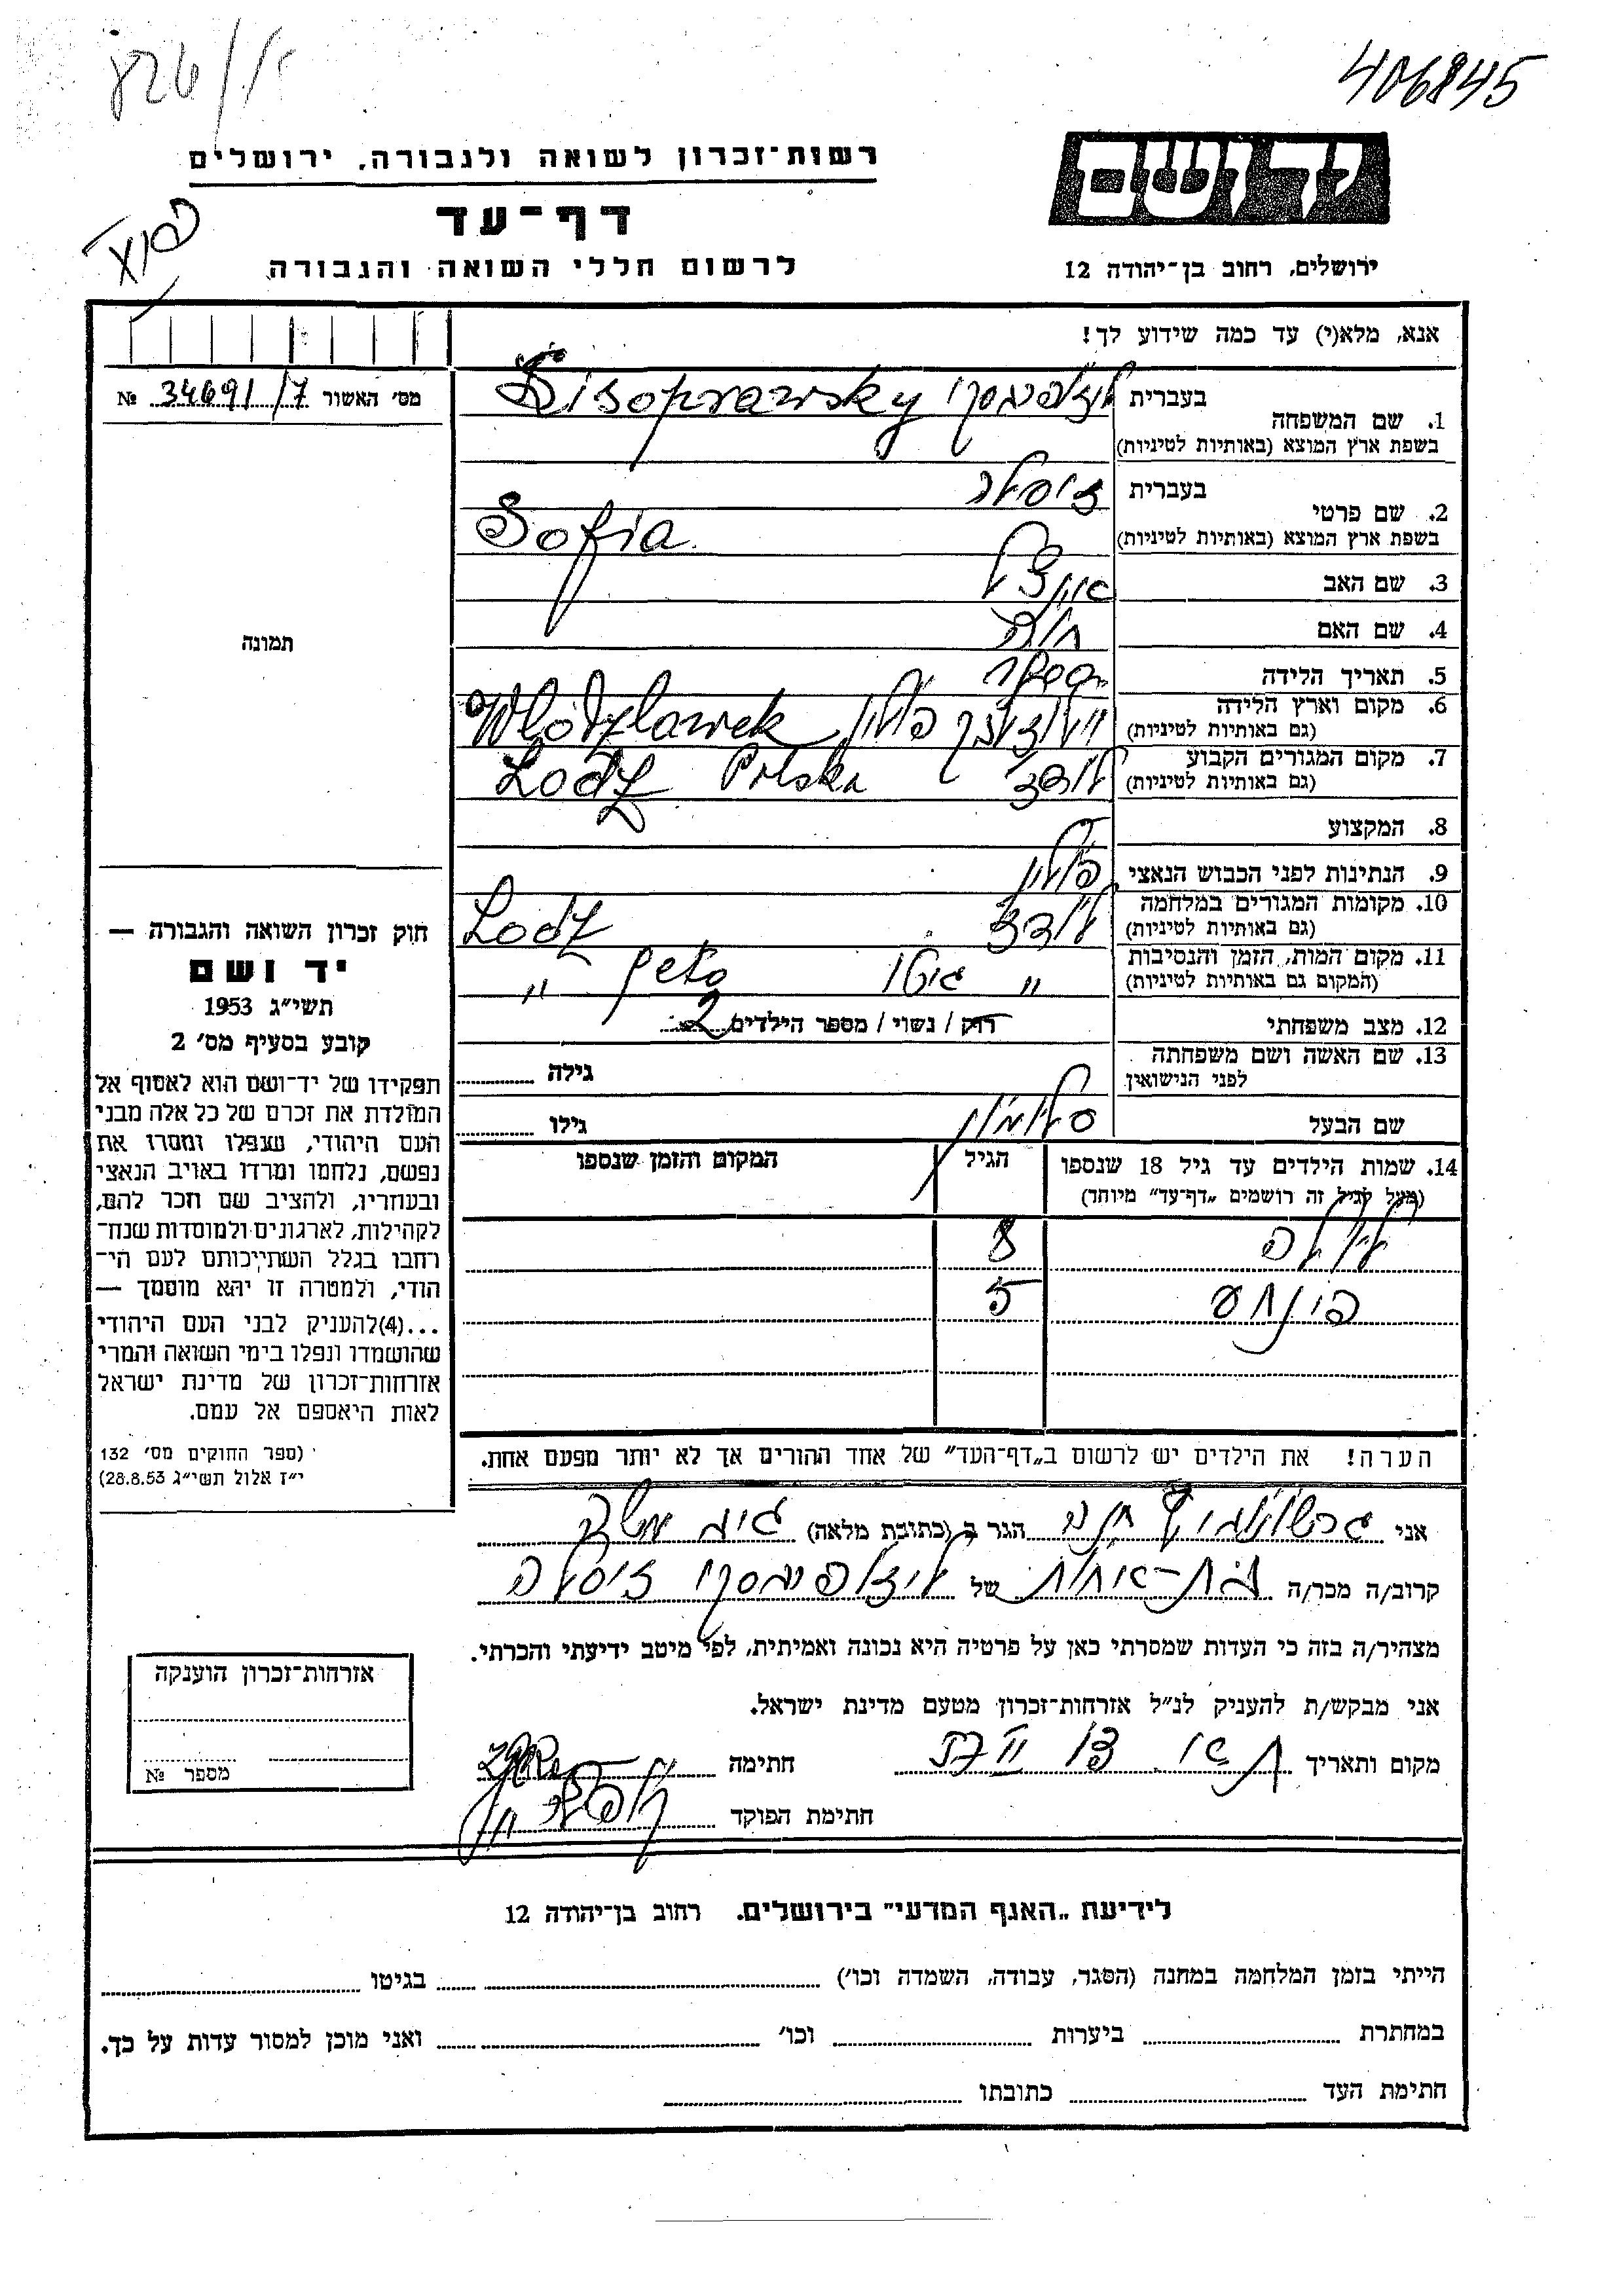 406845
רשות־זכרון לשואה ולגבורה, ירושלים
יד ושם
דף־עד
לרשום חללי השואה והגבורה
ירושלים, רחוב בן־יהודה 12
אנא, מלא(י) עד כמה שידוע לך!
מס׳ האשור 34691/7 №
1. שם המשפחה
בעברית
Lisoprawsky
בשפת ארץ המוצא (באותיות לטיניות)
2. שם פרטי
בעברית
בשפת ארץ המוצא (באותיות לטיניות) Sofia
3. שם האב
4. שם האם חוה
5. תאריך הלידה
6. מקום וארץ הלידה
(גם באותיות לטיניות) פולין Wlodzlawek
7. מקום המגורים הקבוע
(גם באותיות לטיניות) לודז׳ Lodz Polska
8. המקצוע
9. הנתינות לפני הכבוש הנאצי פולין
10. מקומות המגורים במלחמה
(גם באותיות לטיניות) לודז׳ Lodz
11. מקום המות, הזמן והנסיבות
(המקום גם באותיות לטיניות) " גיטו geto "
12. מצב משפחתי רוק / נשוי / מספר הילדים 2
13. שם האשה ושם משפחתה
לפני הנישואין
גילה
שם הבעל סלומון גילו
14. שמות הילדים עד גיל 18 שנספו
(מעל לגיל זה רושמים „דף־עד" מיוחד)
הגיל
המקום והזמן שנספו
8
5
הערה! את הילדים יש לרשום ב„דף־העד" של אחד ההורים אך לא יותר מפעם אחת.
תמונה
חוק זכרון השואה והגבורה —
יד ושם
תשי״ג 1953
קובע בסעיף מס׳ 2
תפקידו של יד־ושם הוא לאסוף אל
המולדת את זכרם של כל אלה מבני
העם היהודי, שנפלו ומסרו את
נפשם, נלחמו ומרדו באויב הנאצי
ובעוזריו, ולהציב שם וזכר להם,
לקהילות, לארגונים ולמוסדות שנח־
רחבו בגלל השתייכותם לעם הי־
הודי, ולמטרה זו יהא מוסמך —
...(4) להעניק לבני העם היהודי
שהושמדו ונפלו בימי השואה והמרי
אזרחות־זכרון של מדינת ישראל
לאות היאספם אל עמם.
(ספר החוקים מס׳ 132
י״ז אלול תשי״ג 28.8.53)
אני הגר ב (כתובת מלאה)
קרוב/ה מכר/ה בת־אחות של
מצהיר/ה בזה כי העדות שמסרתי כאן על פרטיה היא נכונה ואמיתית, לפי מיטב ידיעתי והכרתי.
אני מבקש/ת להעניק לנ״ל אזרחות־זכרון מטעם מדינת ישראל.
מקום ותאריך חתימה
חתימת הפוקד
אזרחות־זכרון הוענקה
מספר №
לידיעת „האגף המדעי" בירושלים. רחוב בן־יהודה 12
הייתי בזמן המלחמה במחנה (הסגר, עבודה, השמדה וכו׳) בגיטו
במחתרת ביערות וכו׳ ואני מוכן למסור עדות על כך.
חתימת העד כתובתו